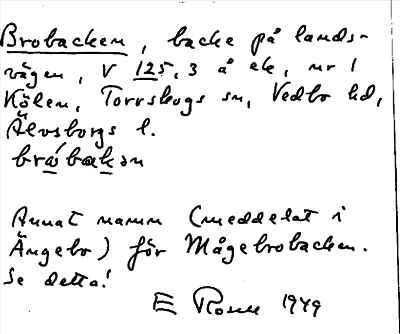 Brobacken, backe på lands-
vägen, V 125, 3 å ek, nr 1
Kölen, Torrskogs sn, Vedbo hd,
Älvsborgs l.
bróbakən
Annat namn (meddelat i
Ängebo) för Mågebrobacken.
Se detta!
E 1949